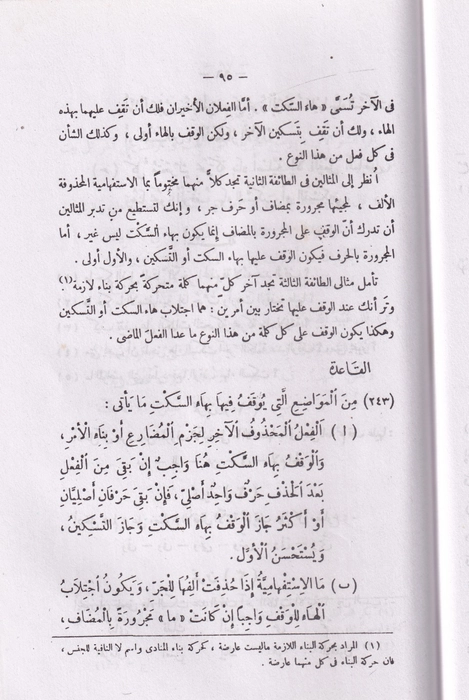 — ٩٥ —
فى الآخر تُسَمَّى « هاء السكت » . أمّا الفعلان الأخيران فلك أن تقِف عليهما بهذه
الهاء ، ولك أن تقف بِتسكين الآخر ، ولكن الوقف بالهاء أولى ، وكذلك الشأن
فى كل فعل من هذا النوع .
اُنظر إلى المثالين فى الطائفة الثانية تجد كلاًّ منهما مختوماً بما الاستفهامية المحذوفة
الألف ، لمجيئها مجرورة بمضاف أو حَرف جر ، وإنك لتستطيع من تدبر المثالين
أن تدرك أنّ الوقف على المجرورة بالمضاف إنما يكون بهاء السكْت ليس غير ، أما
المجرورة بالحرف فيكون الوقف عليها بهاء السكت أو التَّسكين ، والأول أولى .
تأمل مثالى الطائفة الثالثة تجد آخر كلّ منهما كلمة متحركة بحركة بناء لازمة (١)
وترَ أنك عند الوقف عليها تختار بين أمرين : هما اجتلاب هاء السكت أو التَّسكين
وهكذا يكون الوقف على كل كلمة من هذا النوع ما عدا الفعل الماضى .
القاعدة
(٢٤٣) مِنَ الْمَوَاضِعِ الَّتِي يُوقَفُ فِيهَا بِهَاءِ السَّكْتِ مَا يَأتى :
(ا) الْفِعْلُ الْمَحْذُوفُ الْآخِرِ لِجَزْمِ الْمُضَارِعِ أَوْ بِنَاءِ الْأَمْرِ،
وَالْوَقْفُ بِهَاءِ السَّكْتِ هُنَا وَاجِبٌ إِنْ بَقِىَ مِنَ الْفِعْلِ
بَعْدَ الْحَذْفِ حَرْفٌ وَاحِدٌ أَصْلِىٌّ، فَإِنْ بَقِىَ حَرْفَانِ أَصْلِيَّانِ
أَوْ أَكْثَرُ جَازَ الْوَقْفُ بِهَاءِ السَّكْتِ وَجَازَ التَّسْكِينُ ،
وَيُسْتَحْسَنُ الْأَوَّلُ .
(ب) مَا الِاسْتِفْهَامِيَّةُ إِذَا حُذِفَتْ أَلِفُهَا لِلْجَرِّ، وَيَكُونُ اجْتِلَابُ
الْهَاءِ لِلْوَقْفِ وَاجِبًا إِنْ كَانَتْ «ما» مَجْرُورَةً بِالْمُضَافِ،
(١) المراد بحركة البناء اللازمة ماليست عارضة ، كحركة بناء المنادى واسم لا النافية للجنس ،
فان حركة البناء فى كل منهما عارضة .